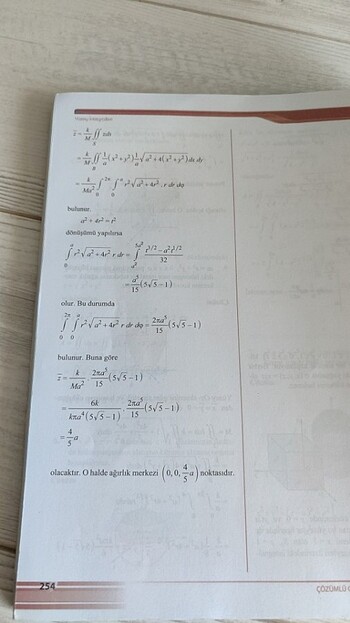 Yüzey İntegralleri
z̄ = k/M ∬_S z ds
= k/M ∬_S 1/a (x² + y²) 1/a √(a² + 4(x² + y²)) dx dy
= k/(Ma²) ∫_0^{2π} ∫_0^a r² √(a² + 4r²) . r dr dφ
bulunur.
a² + 4r² = t²
dönüşümü yapılırsa
∫_0^a r² √(a² + 4r²) r dr =
= a⁵/15 (5√5 − 1)
olur. Bu durumda
∫_0^{2π} ∫_0^a r² √(a² + 4r²) r dr dφ = 2πa⁵/15 (5√5 − 1)
bulunur. Buna göre
z̄ = k/(Ma²) . 2πa⁵/15 (5√5 − 1)
= 6k/(kπa⁴(5√5 − 1)) . 2πa⁵/15 (5√5 − 1)
= 4/5 a
olacaktır. O halde ağırlık merkezi (0, 0, 4/5 a) noktasıdır.
254
ÇÖZÜMLÜ